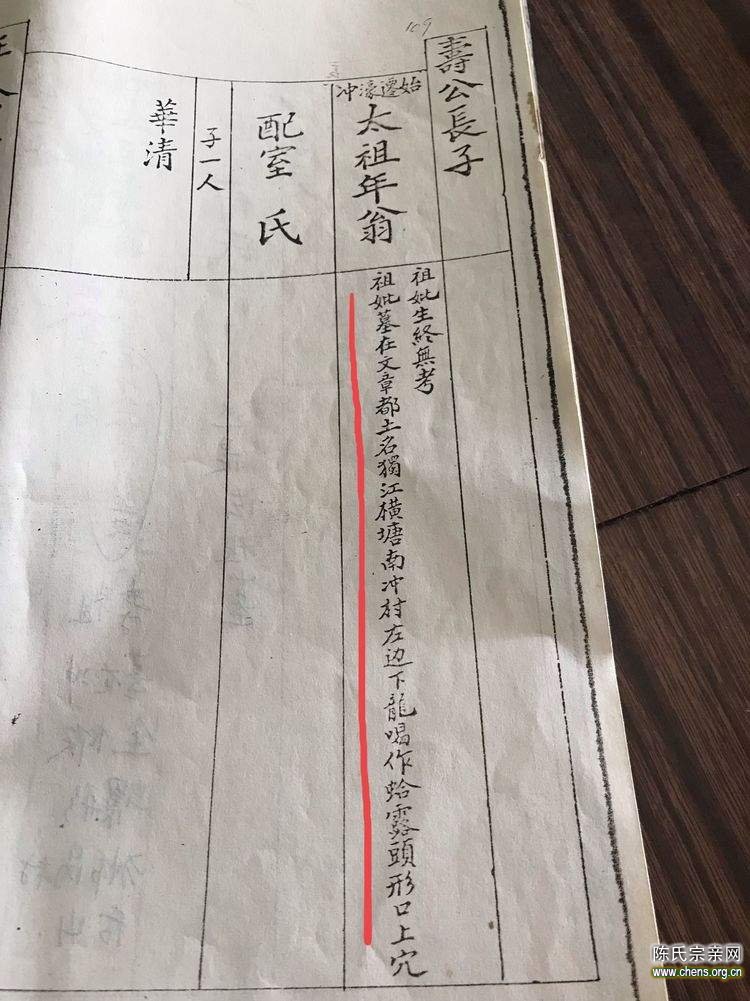 109
壽公長子
始遷濠冲
太祖年翁
祖妣生終無考
祖妣墓在文章都土名獨江橫塘南冲村左边下龍喝作蛤露頭形口上穴
配室 氏
子一人
華清
陈氏宗亲网
www.chens.org.cn